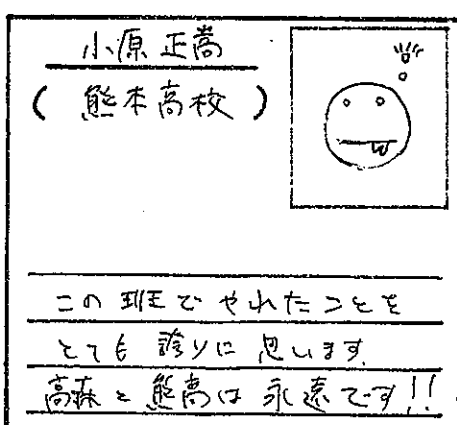 小原正嵩
(熊本高校)
この班でやれたことを
とても誇りに思います
高森と熊高は永遠です!!